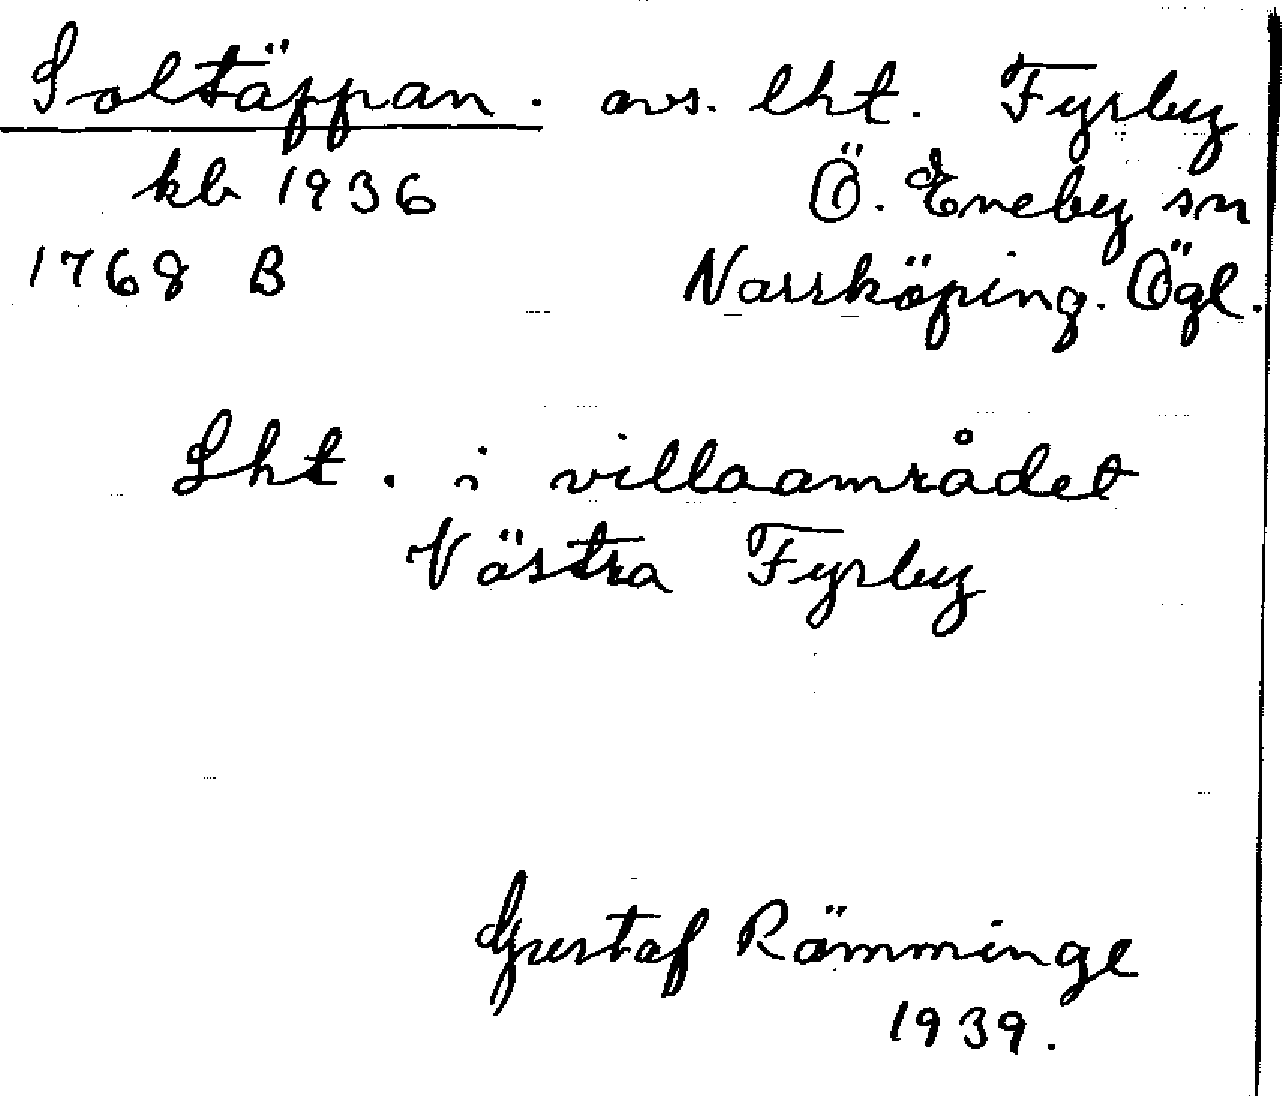 Soltäppan. avs. lht. Fyrby
kb 1936 Ö. Eneby sn
1768 B Norrköping. Ögl.
Lht. i villaområdet
Västra Fyrby
Gustaf Rämminge
1939.